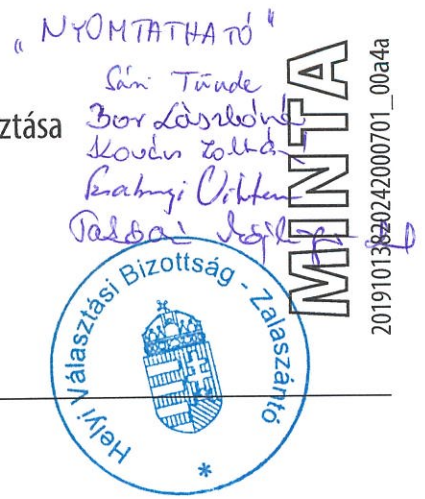 „NYOMTATHATÓ"
Sári Tünde
Bor Lászlóné
Kovács Zoltán
ztása
MINTA
20191013820242000701_00a4a
Helyi Választási Bizottság - Zalaszántó *